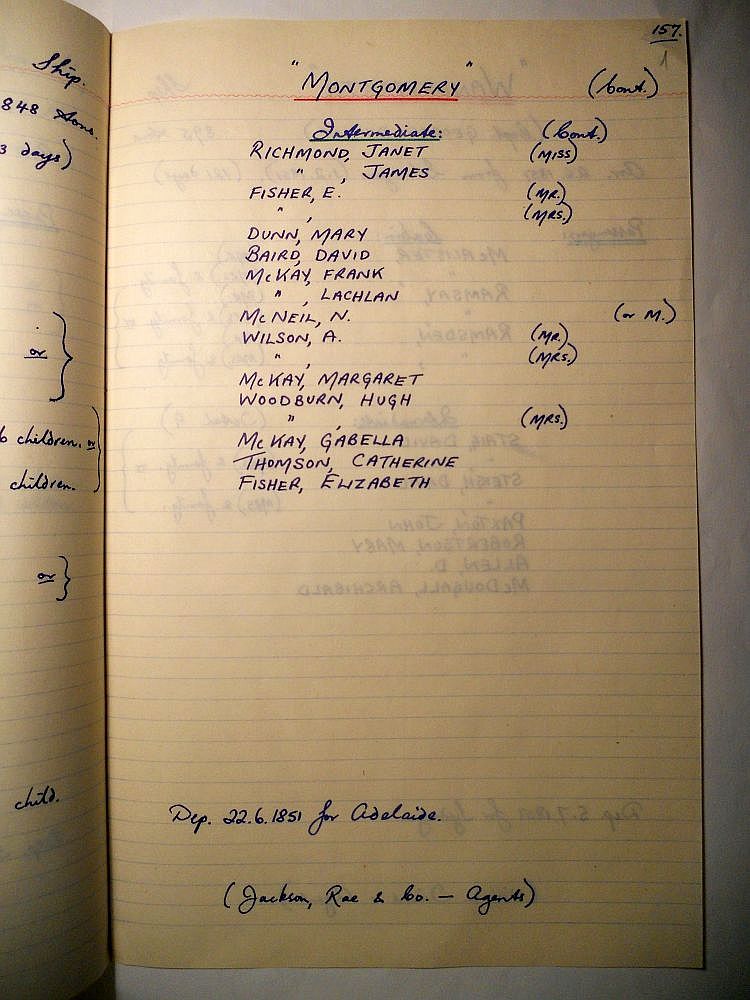 Ship.
848 tons.
3 days)
or
6 children. or
children.
or
child.
157.
1
"MONTGOMERY" (Cont.)
Intermediate: (Cont.)
RICHMOND, JANET (MISS)
" , JAMES
FISHER, E. (MR.)
" , (MRS.)
DUNN, MARY
BAIRD, DAVID
McKAY, FRANK
" , LACHLAN
McNEIL, N. (or M.)
WILSON, A. (MR.)
" , (MRS.)
McKAY, MARGARET
WOODBURN, HUGH
" , (MRS.)
McKAY, GABELLA
THOMSON, CATHERINE
FISHER, ELIZABETH
Dep. 22.6.1851 for Adelaide.
(Jackson, Rae & Co. — Agents)